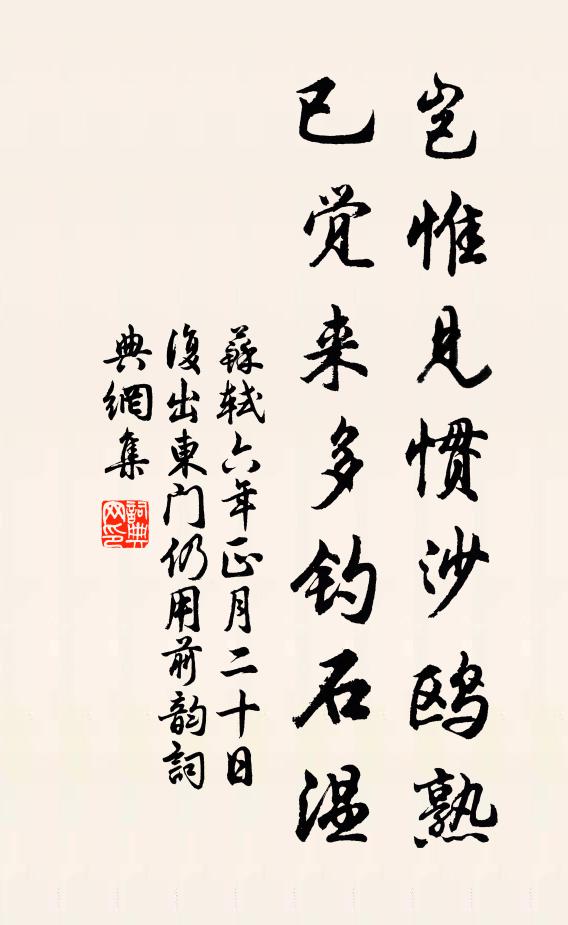 岂惟见惯沙鸥熟
已觉来多钓石温
蘇轼六年正月二十日
復出東门仍用前韵詞
典網集
詞典网印